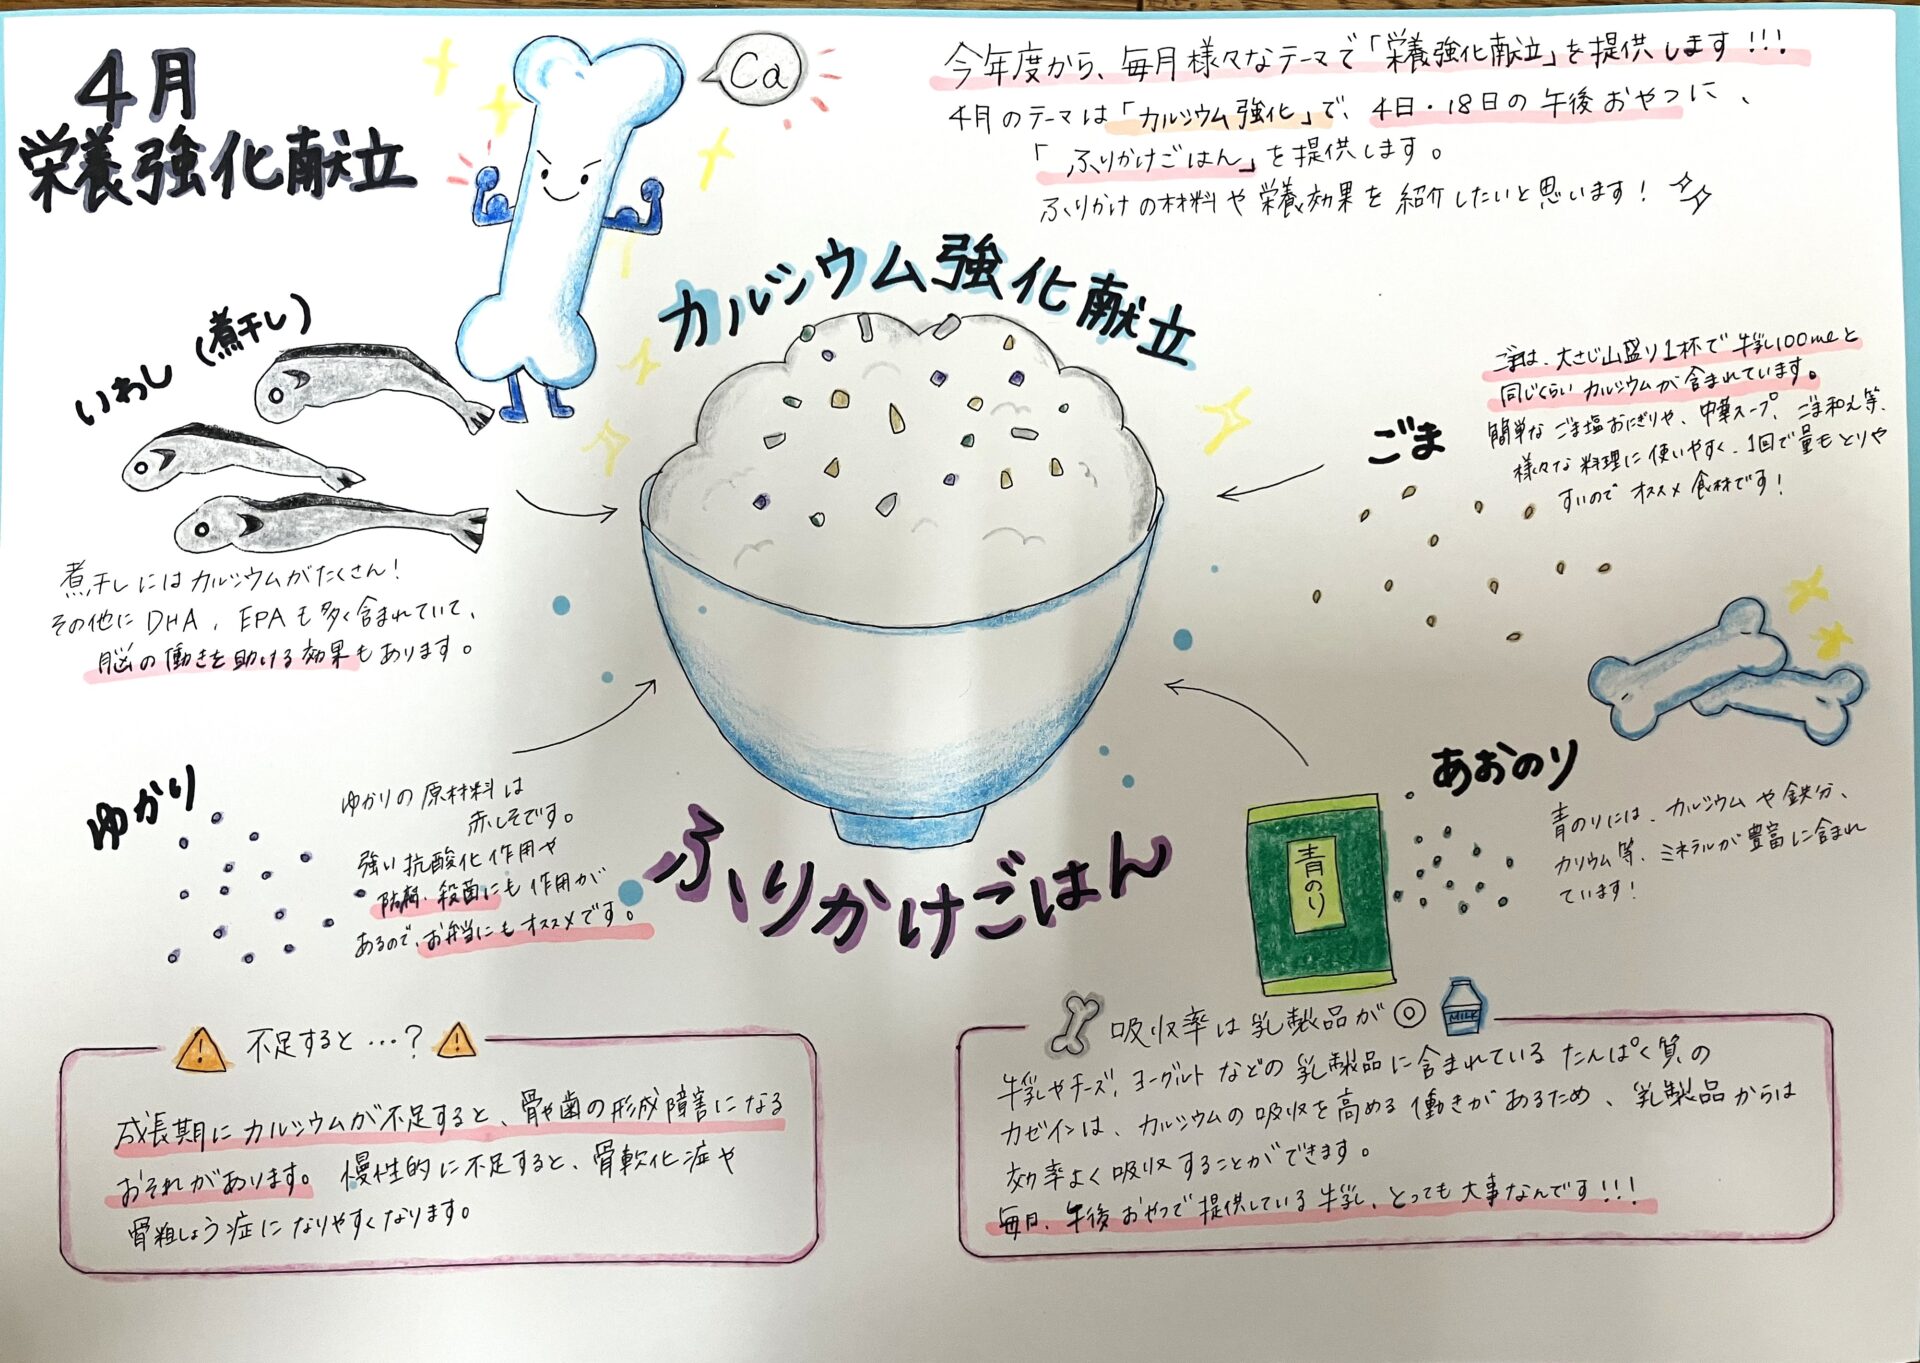 4月
栄養強化献立
Ca
今年度から、毎月様々なテーマで「栄養強化献立」を提供します!!!
4月のテーマは「カルシウム強化」で、4日・18日の午後おやつに、
「ふりかけごはん」を提供します。
ふりかけの材料や栄養効果を紹介したいと思います!
カルシウム強化献立
いわし(煮干し)
煮干しにはカルシウムがたくさん!
その他にDHA、EPAも多く含まれていて、
脳の働きを助ける効果もあります。
ごま
ごまは、大さじ山盛り1杯で牛乳100mlと
同じくらいカルシウムが含まれています。
簡単なごま塩おにぎりや、中華スープ、ごま和え等、
様々な料理に使いやすく、1回で量もとりや
すいのでオススメ食材です!
ゆかり
ゆかりの原材料は
赤しそです。
強い抗酸化作用や
防腐、殺菌にも作用が
あるので、お弁当にもオススメです。
あおのり
青のりには、カルシウムや鉄分、
カリウム等、ミネラルが豊富に含まれ
ています!
青のり
ふりかけごはん
不足すると…?
成長期にカルシウムが不足すると、骨や歯の形成障害になる
おそれがあります。慢性的に不足すると、骨軟化症や
骨粗しょう症になりやすくなります。
吸収率は乳製品が◎
MILK
牛乳やチーズ、ヨーグルトなどの乳製品に含まれているたんぱく質の
カゼインは、カルシウムの吸収を高める働きがあるため、乳製品からは
効率よく吸収することができます。
毎日、午後おやつで提供している牛乳、とっても大事なんです!!!